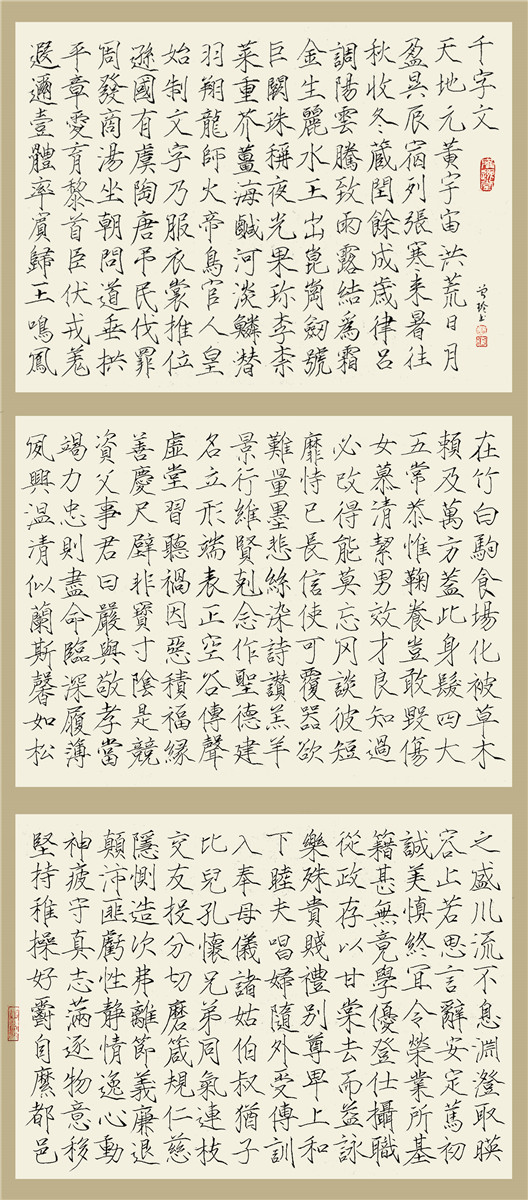 千字文
天地元黃宇宙洪荒日月
盈昃辰宿列張寒来暑往
秋收冬藏閏餘成歲律呂
調陽雲騰致雨露結為霜
金生麗水玉出崑崗劍號
巨闕珠稱夜光果珍李柰
菜重芥薑海鹹河淡鱗潛
羽翔龍師火帝鳥官人皇
始制文字乃服衣裳推位
遜國有虞陶唐弔民伐罪
周發商湯坐朝問道垂拱
平章愛育黎首臣伏戎羌
遐邇壹體率賓歸王鳴鳳
在竹白駒食場化被草木
賴及萬方蓋此身髮四大
五常恭惟鞠養豈敢毀傷
女慕清絜男效才良知過
必改得能莫忘罔談彼短
靡恃己長信使可覆器欲
難量墨悲絲染詩讚羔羊
景行維賢剋念作聖德建
名立形端表正空谷傳聲
虛堂習聽禍因惡積福緣
善慶尺璧非寶寸陰是競
資父事君曰嚴與敬孝當
竭力忠則盡命臨深履薄
夙興温清似蘭斯馨如松
之盛川流不息淵澄取暎
容止若思言辭安定篤初
誠美慎終宜令榮業所基
籍甚無竟學優登仕攝職
從政存以甘棠去而益詠
樂殊貴賤禮別尊卑上和
下睦夫唱婦隨外受傅訓
入奉母儀諸姑伯叔猶子
比兒孔懷兄弟同氣連枝
交友投分切磨箴規仁慈
隱惻造次弗離節義廉退
顛沛匪虧性靜情逸心動
神疲守真志滿逐物意移
堅持雅操好爵自縻都邑